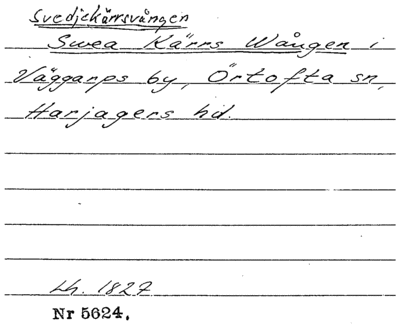 Svedjekärrsvången
Swea Kärrs Wången i
Väggarps by, Örtofta sn,
Harjagers hd.
Lh. 1827
Nr 5624.